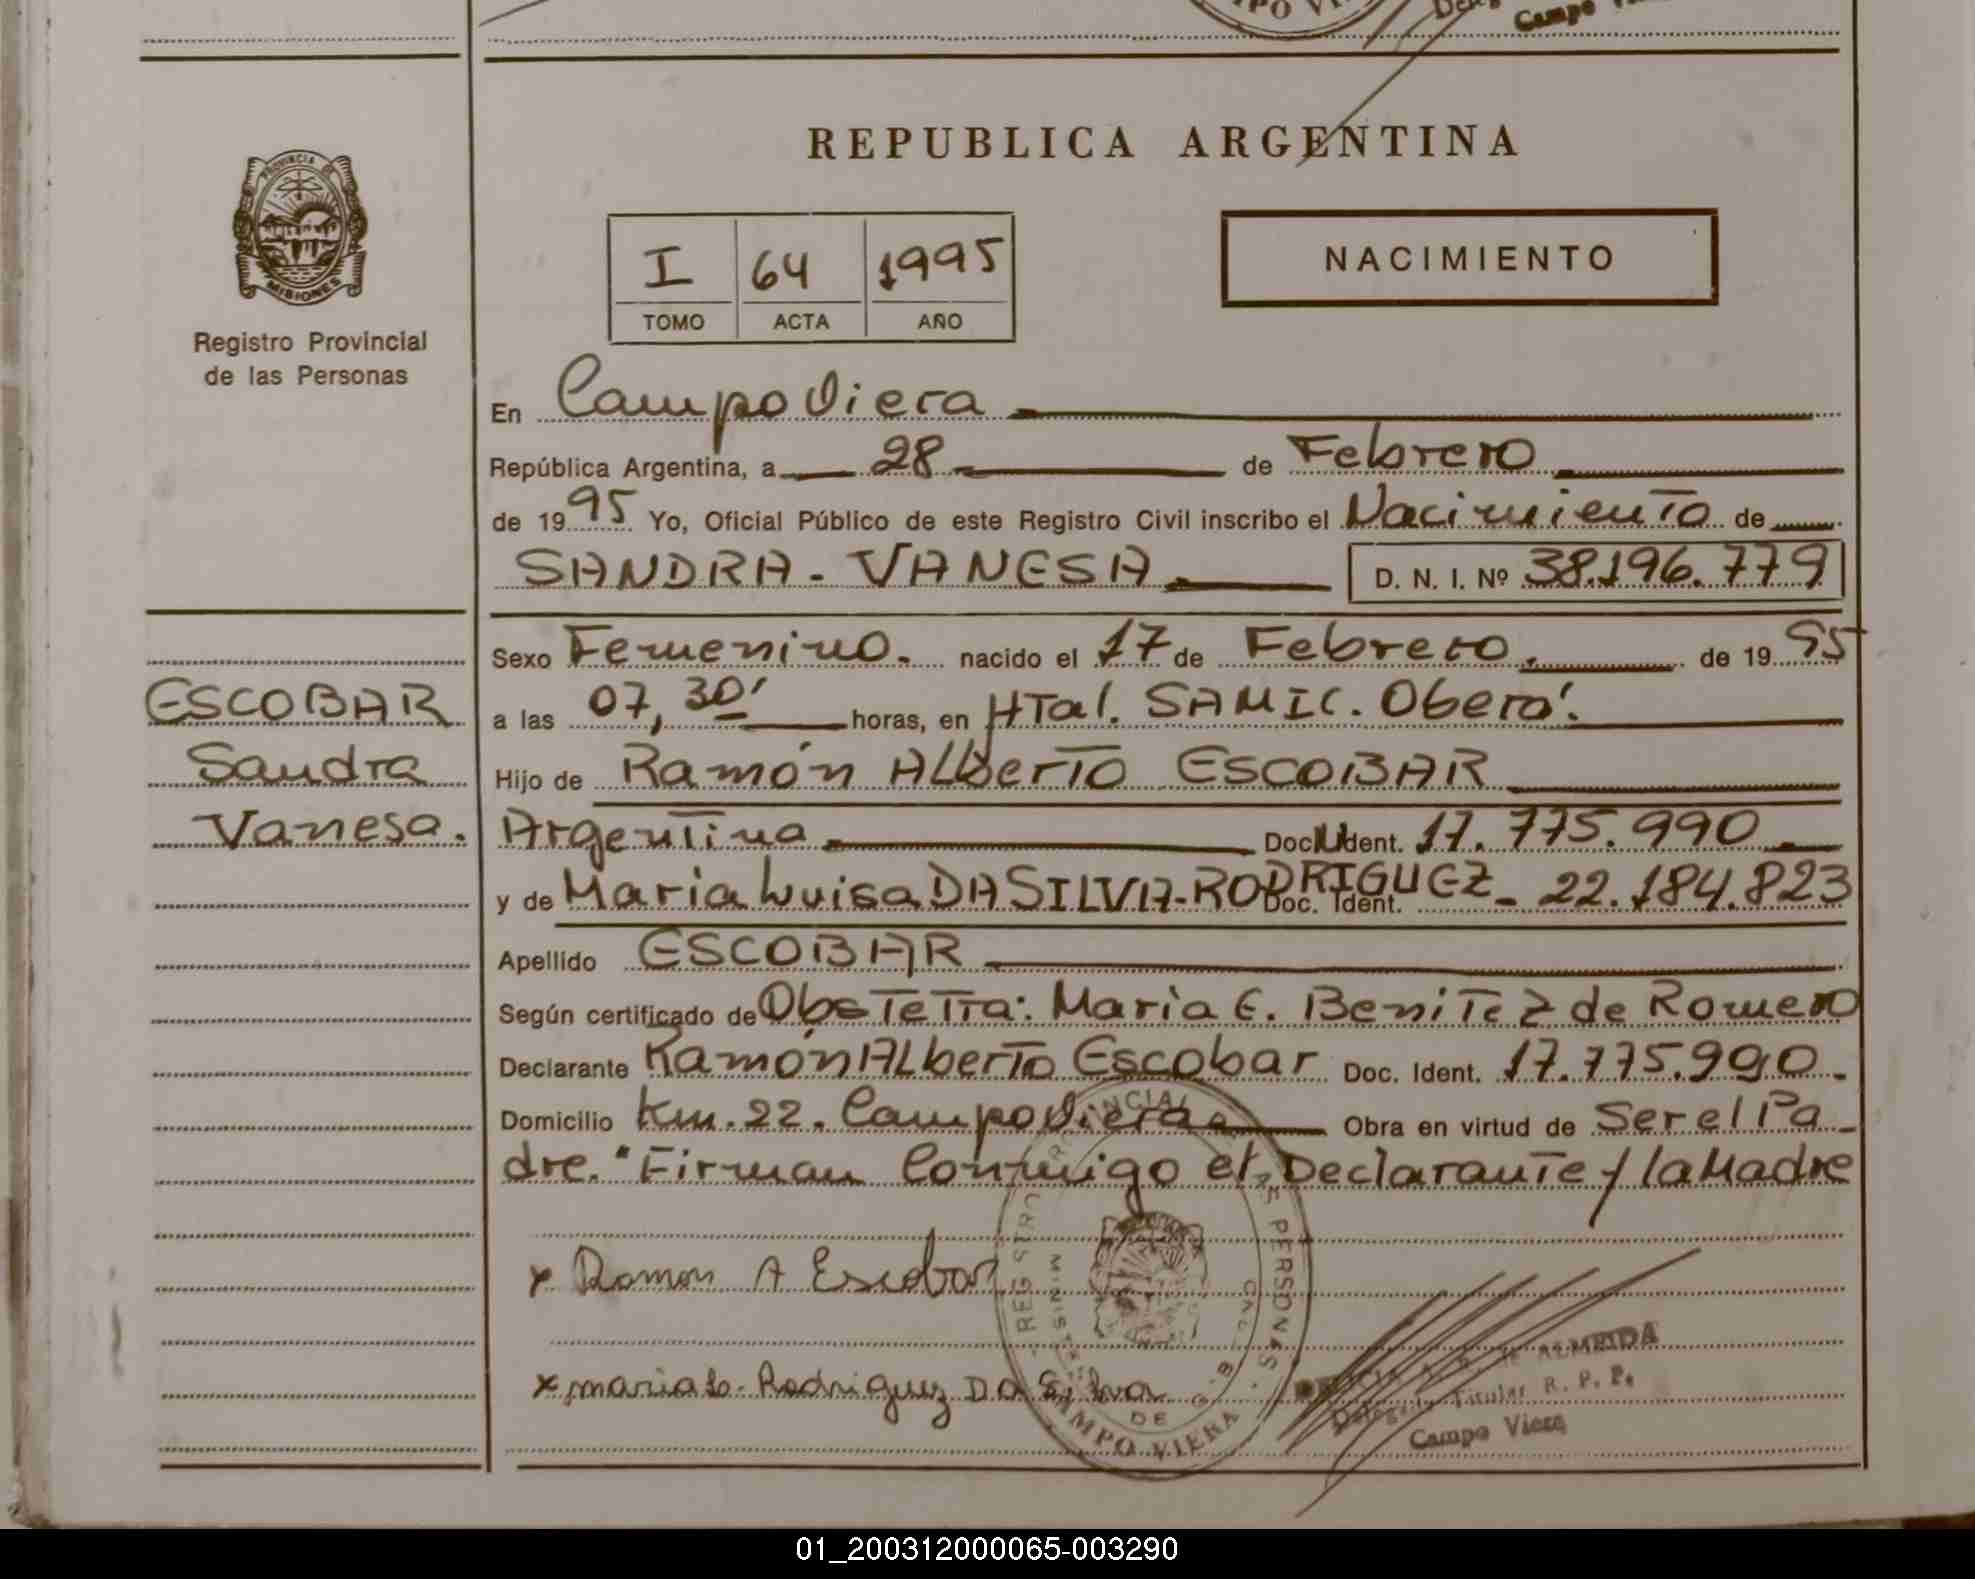 Campo
REPUBLICA ARGENTINA
PROVINCIA DE
MISIONES
Registro Provincial
de las Personas
I 64 1995
TOMO ACTA AÑO
NACIMIENTO
En Campo Viera
República Argentina, a 28 de Febrero
de 1995 Yo, Oficial Público de este Registro Civil inscribo el Nacimiento de
SANDRA - VANESA D. N. I. Nº 38.196.779
Sexo Femenino. nacido el 17 de Febrero. de 1995
ESCOBAR
Sandra
Vanesa.
a las 07,30' horas, en HTal. SAMIC. Oberá.
Hijo de Ramón ALberto ESCOBAR
Argentina Doc. Ident. 17.775.990
y de Maria Luisa DA SILVA-RODRIGUEZ - Doc. Ident. 22.184.823
Apellido ESCOBAR
Según certificado de Obstetra: Maria E. Benitez de Romero
Declarante Ramón ALberto Escobar Doc. Ident. 17.775.990.
Domicilio Km. 22. Campo Viera Obra en virtud de Ser el Pa
dre. "Firman Conmigo el Declarante y la Madre
x Ramon A Escobar
x maria L. Rodriguez Da Silva
REGISTRO PROVINCIAL DE LAS PERSONAS
CAMPO VIERA
DE ALMEIDA
Delegada Titular R. P. P.
Campo Viera
01_200312000065-003290